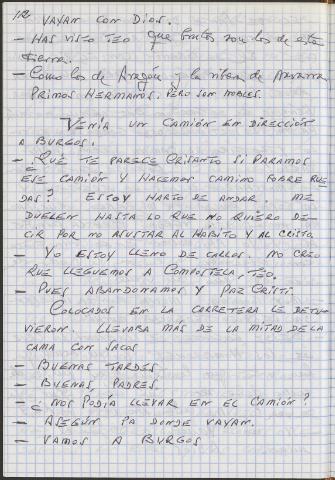 112
VAYAN CON DIOS.
— HAS VISTO TEO que brutos son los de esta
tierra.
— Como los de Aragón y la ribera de Navarra
PRIMOS HERMANOS. PERO SON NOBLES.
VENÍA UN CAMIÓN EN DIRECCIÓN
A BURGOS.
— ¿QUE TE PARECE CRISANTO SI PARAMOS
ESE CAMIÓN Y HACEMOS CAMINO SOBRE RUE
DAS? ESTOY HARTO DE ANDAR. ME
DUELEN HASTA LO QUE NO QUIERO DE-
CIR POR NO ASUSTAR AL HABITO Y AL CRISTO.
— YO ESTOY LLENO DE CALLOS. NO CREO
QUE LLEGUEMOS A COMPOSTELA, TEO.
— PUES ABANDONAMOS Y PAZ CRISTI.
COLOCADOS EN LA CARRETERA LE DETU-
VIERON. LLEVABA MÁS DE LA MITAD DE LA
CAMA CON SACOS
— BUENAS TARDES
— BUENAS, PADRES.
— ¿NOS PODÍA LLEVAR EN EL CAMIÓN?
— ASEGÚN PA DONDE VAYAN.
— VAMOS A BURGOS